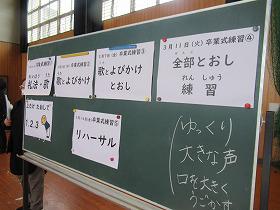 礼法・歌
卒業式練習②
歌とよびかけ
卒業式練習③
歌とよびかけ
とおし
3月11日(火)卒業式練習④
全部とおし
れん しゅう
練習
1.2.3
卒業式練習⑤
リハーサル
ゆっくり
大きな声
口を大きく
うごかす